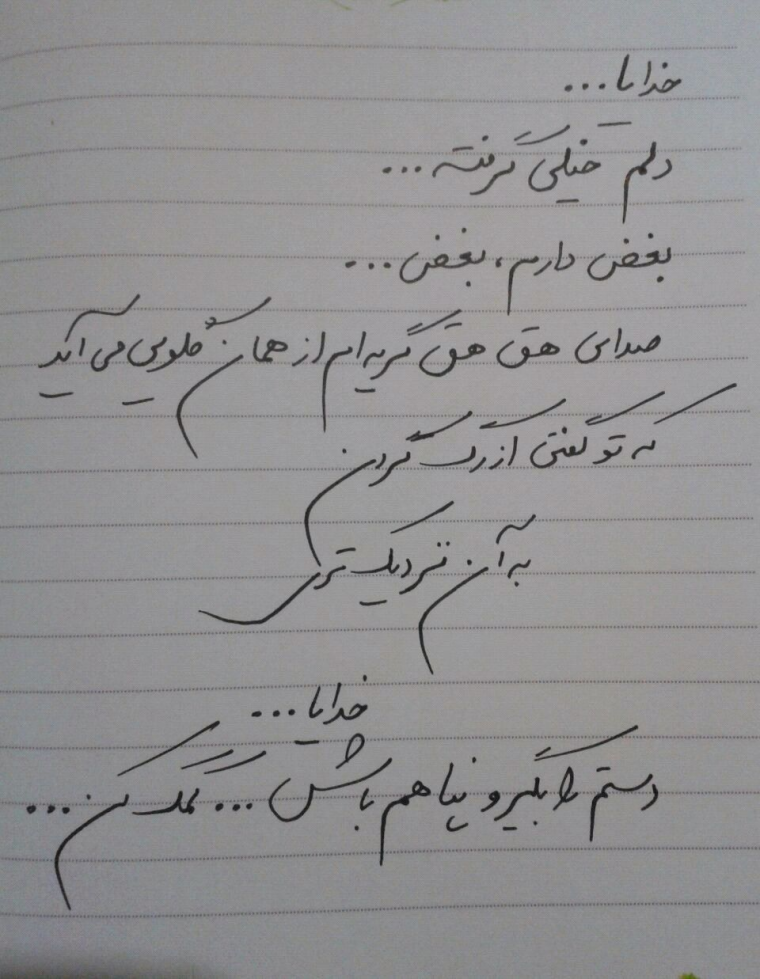 خدایا...
دلم خیلی گرفته...
بغض دارم، بغض...
صدای هق هق گریه ام از همان گلویی می آید
که تو گفتی از رگ گردن
به آن نزدیک تری
خدایا...
دستم را بگیر و پناهم باش... کمک کن...